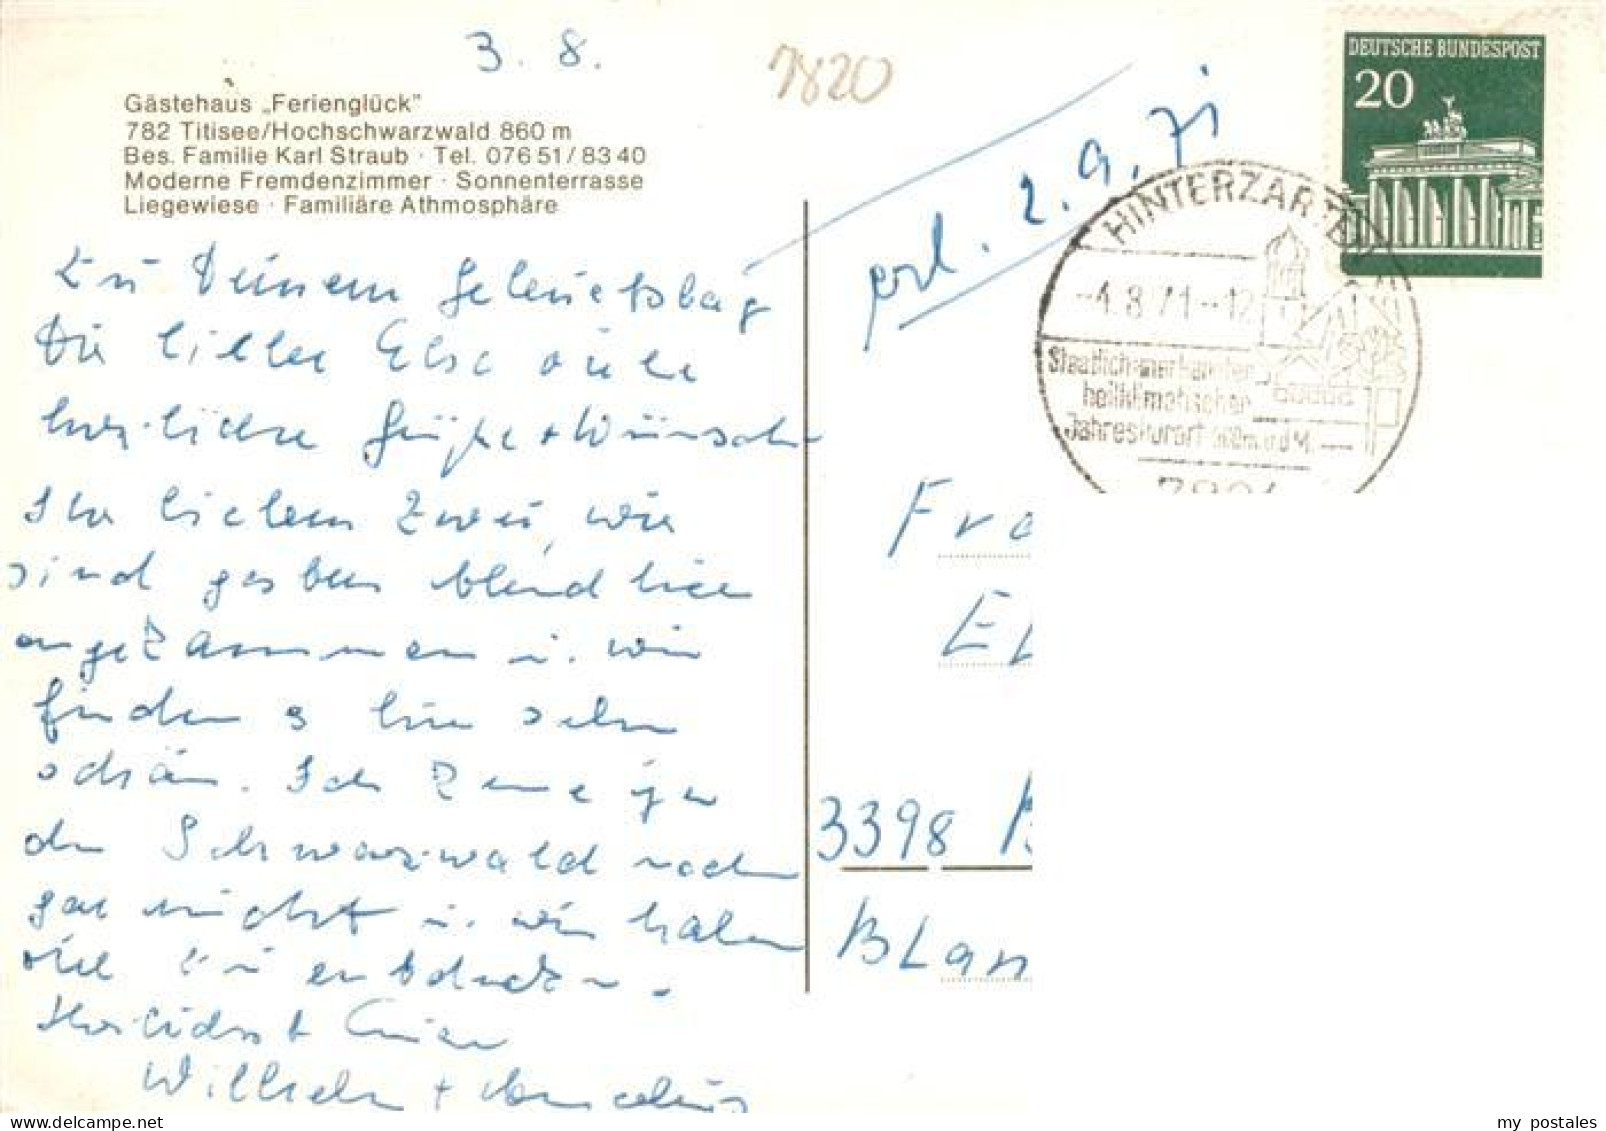 3. 8.
7820
Gästehaus „Ferienglück"
782 Titisee/Hochschwarzwald 860 m
Bes. Familie Karl Straub · Tel. 076 51 / 83 40
Moderne Fremdenzimmer · Sonnenterrasse
Liegewiese · Familiäre Athmosphäre
DEUTSCHE BUNDESPOST
20
erl. 2.9.71
HINTERZARTEN
-4.8.71--12
Staatlich anerkannter
heilklimatischer
Jahreskurort
Zu Deinem Geburtstag
Dir liebe Else viele
herzliche Grüße + Wünsche
Ihr lieben Zwei, wir
sind gestern blendend hier
angekommen u. wir
finden es hier sehr
schön. Ich kenne ja
den Schwarzwald noch
gar nicht u. wir haben
viel zu entdecken.
Herzlichst Euer
Wilhelm +
Fra
El
3398 B
BLan
my postales